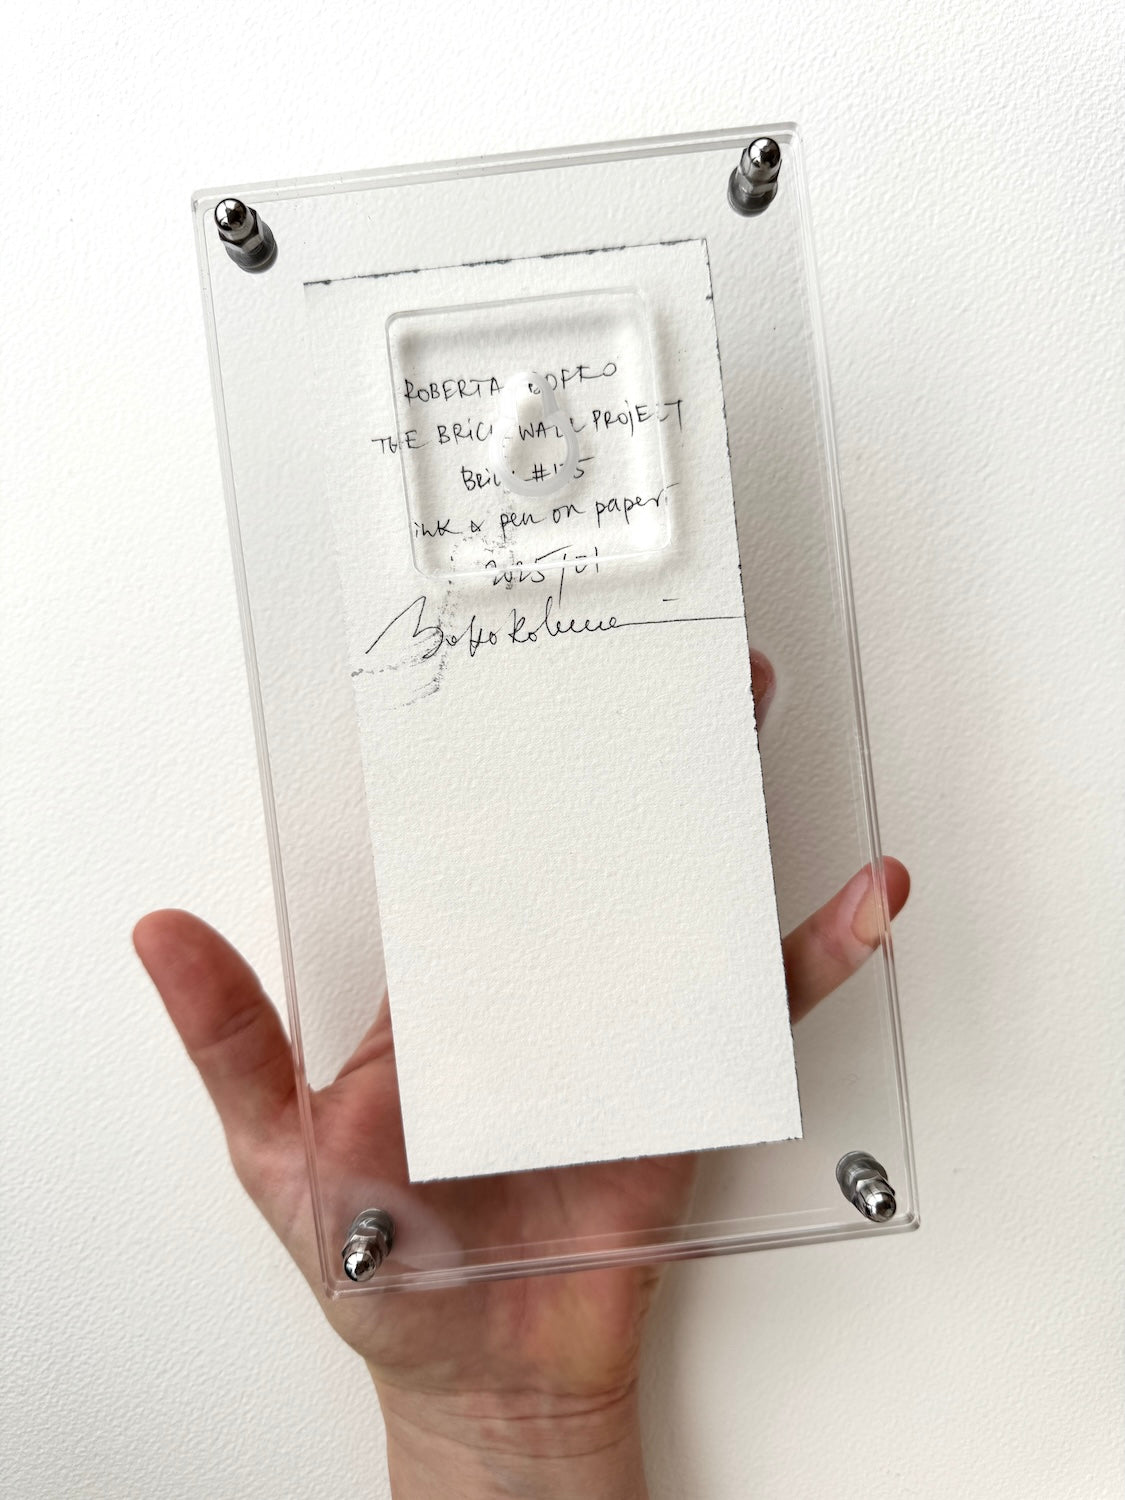 ROBERTA BOFKO
THE BRICK WALL PROJECT
BRICK
ink & pen on paper
2025/01